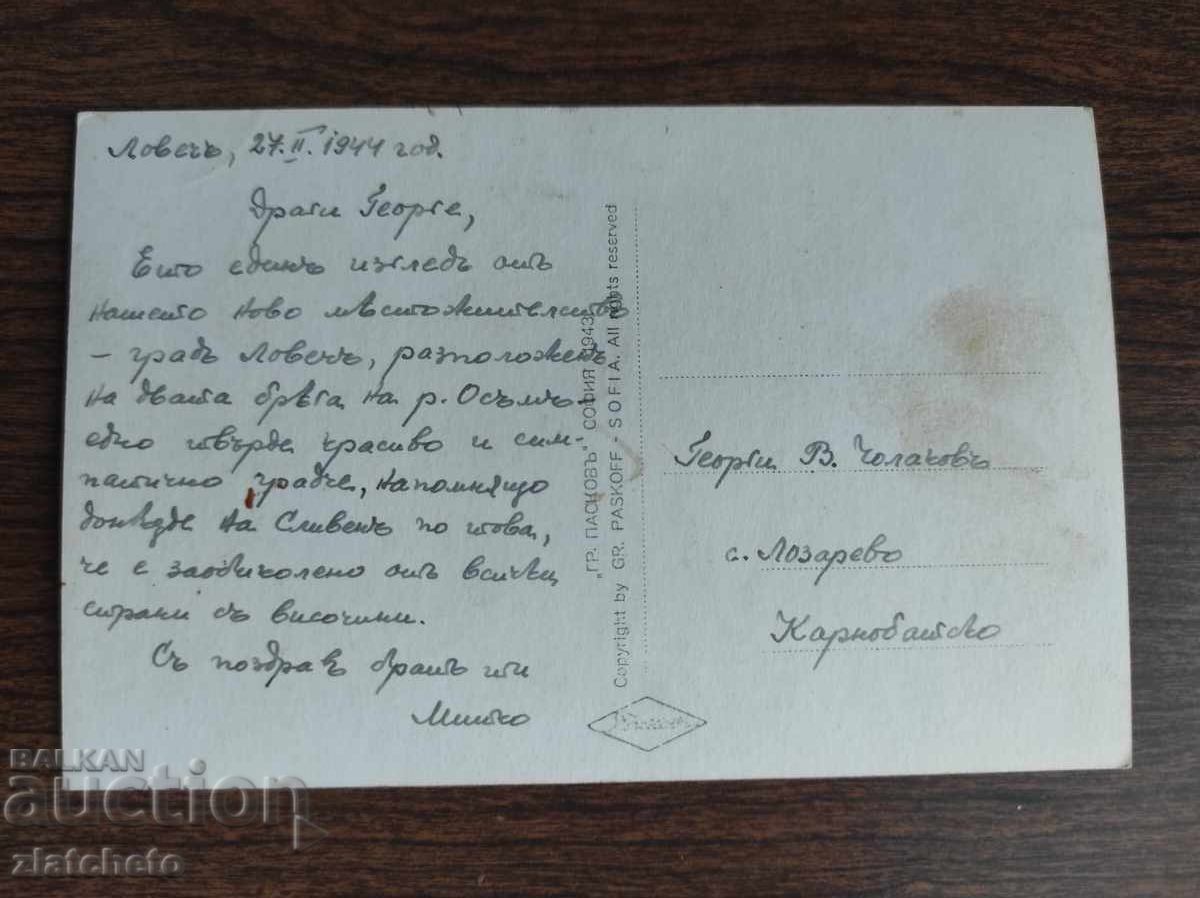 Ловечъ, 27.II.1944 год.
Драги Георге,
Ето единъ изгледъ отъ
нашето ново мѣстожителство
– градъ Ловечъ, разположенъ
на двата брѣга на р. Осъмъ –
едно твърде красиво и сим-
патично градче, напомнящо
донѣкѫде на Сливенъ по това,
че е заобиколено отъ всички
страни съ височини.
Съ поздравъ братъ ти
Митко
"ГР. ПАСКОВЪ" СОФИЯ 1943
Copyright by GR. PASKOFF - SOFIA. All rights reserved
Георги В. Чолаковъ
с. Лозарево
Карнобатско
BALKAN
auction
zlatcheto